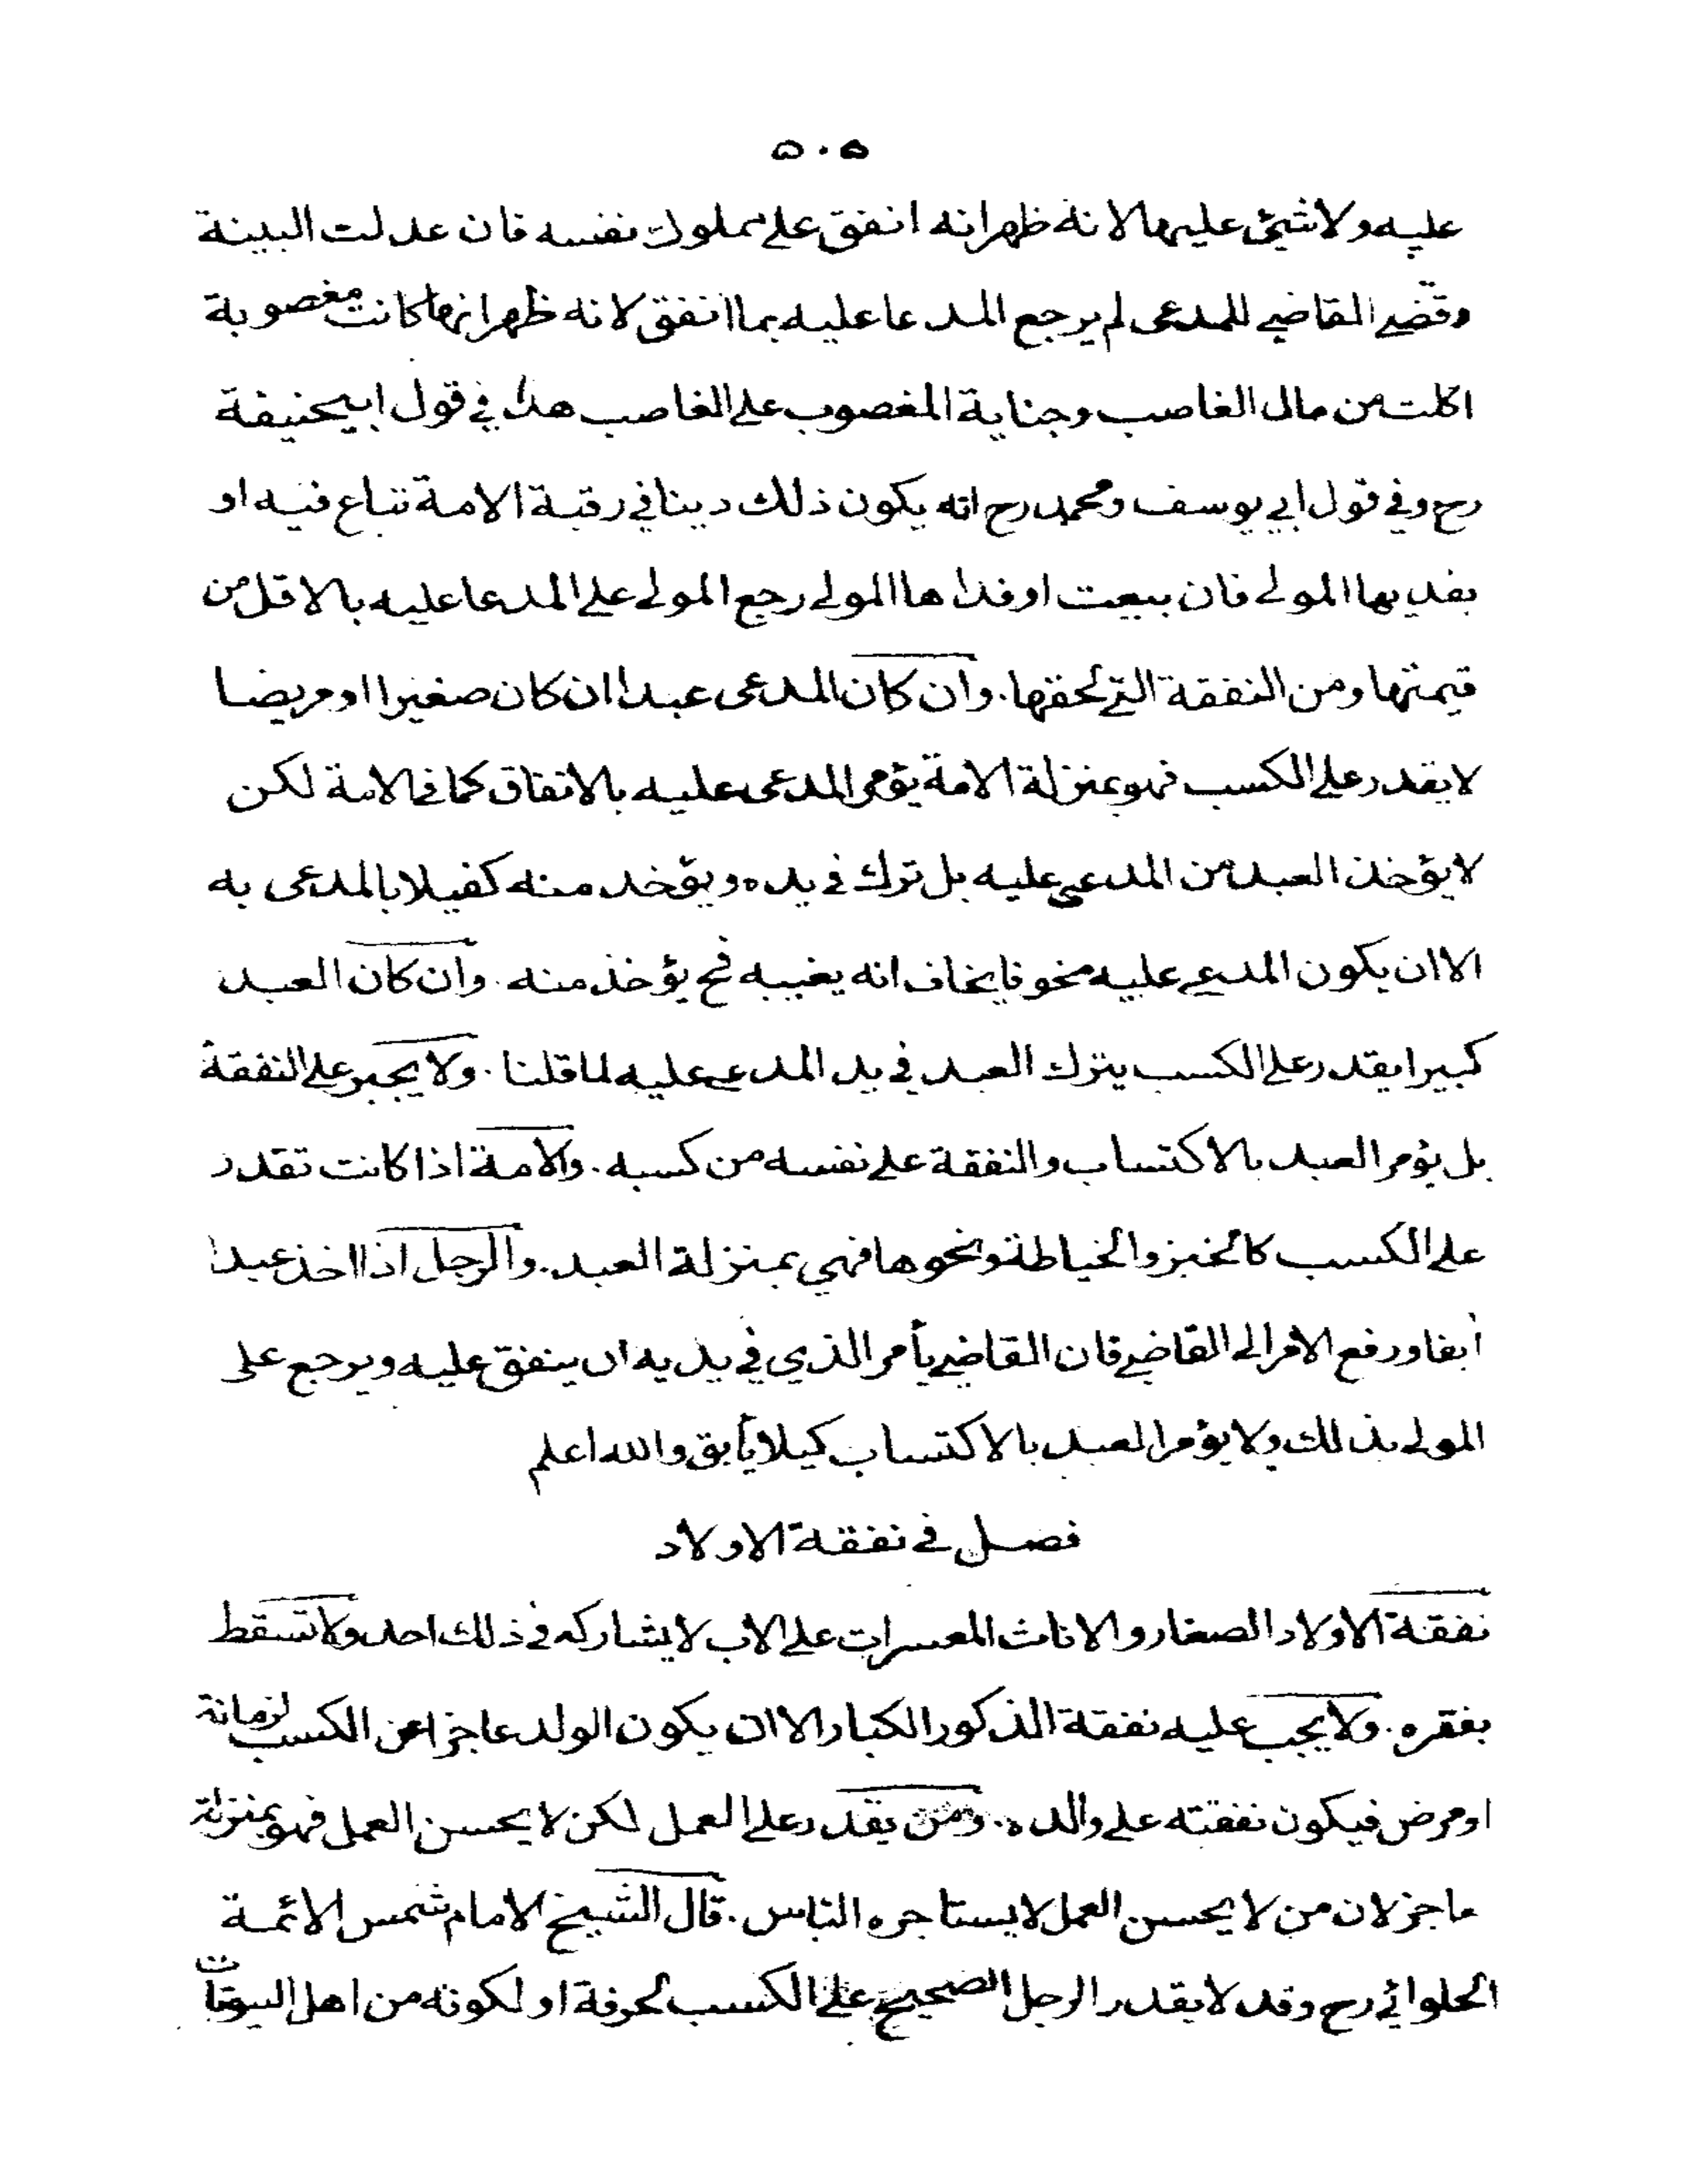 ٥٠٥
عليه ولا شيئ عليها لانه ظهر انه انفق على مملوك نفسه فان عدلت البينة
وقضى القاضي للمدعى لم يرجع المدعا عليه بما انفق لانه ظهر انها كانت مغصوبة
اكلت من مال الغاصب وجناية المغصوب على الغاصب هذا في قول ابيحنيفة
رح وفي قول ابي يوسف ومحمد رح انه يكون ذلك دينا في رقبة الامة تباع فيه او
يفديها المولى فان بيعت او فداها المولى رجع المولى على المدعا عليه بالاقل من
قيمتها ومن النفقة التي لحقها. وان كان المدعى عبدا ان كان صغيرا او مريضا
لا يقدر على الكسب فهو بمنزلة الامة يؤمر المدعى عليه بالانفاق كما في الامة لكن
لا يؤخذ العبد من المدعى عليه بل ترك في يده ويؤخد منه كفيلا بالمدعى به
الا ان يكون المدعى عليه مخوفا يخاف انه يغيبه فح يؤخذ منه. وان كان العبد
كبيرا يقدر على الكسب يترك العبد في يد المدعى عليه لما قلنا. ولا يجبر على النفقة
بل يؤمر العبد بالاكتساب والنفقة على نفسه من كسبه. والامة اذا كانت تقدر
على الكسب كالخبز والخياطة ونحوها فهي بمنزلة العبد. والرجل اذا اخذ عبدا
أبقا ورفع الامر الى القاضي فان القاضي يأمر الذي في يديه ان ينفق عليه ويرجع على
المولى بذلك ولا يؤمر العبد بالاكتساب كيلا يأبق والله اعلم
فصل في نفقة الاولاد
نفقة الاولاد الصغار والاناث المعسرات على الاب لا يشاركه في ذلك احد ولا تسقط
بفقره. ولا يجب عليه نفقة الذكور الكبار الا ان يكون الولد عاجزا عن الكسب لزمانة
او مرض فيكون نفقته على والده. ومن يقدر على العمل لكن لا يحسن العمل فهو بمنزلة
عاجز لان من لا يحسن العمل لا يستاجره الناس. قال الشيخ الامام شمس الائمة
الحلوائي رح وقد لا يقدر الرجل الصحيح على الكسب لحرفة او لكونه من اهل البيوتات